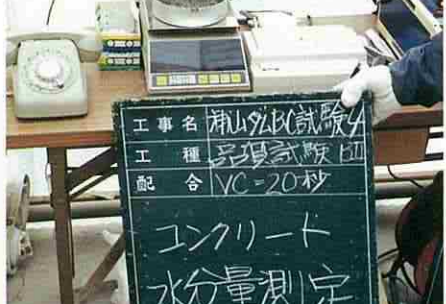 工事名 神山ダムBC試験ヤ
工種 品質試験
配合 VC=20秒
コンクリート
水分量測定